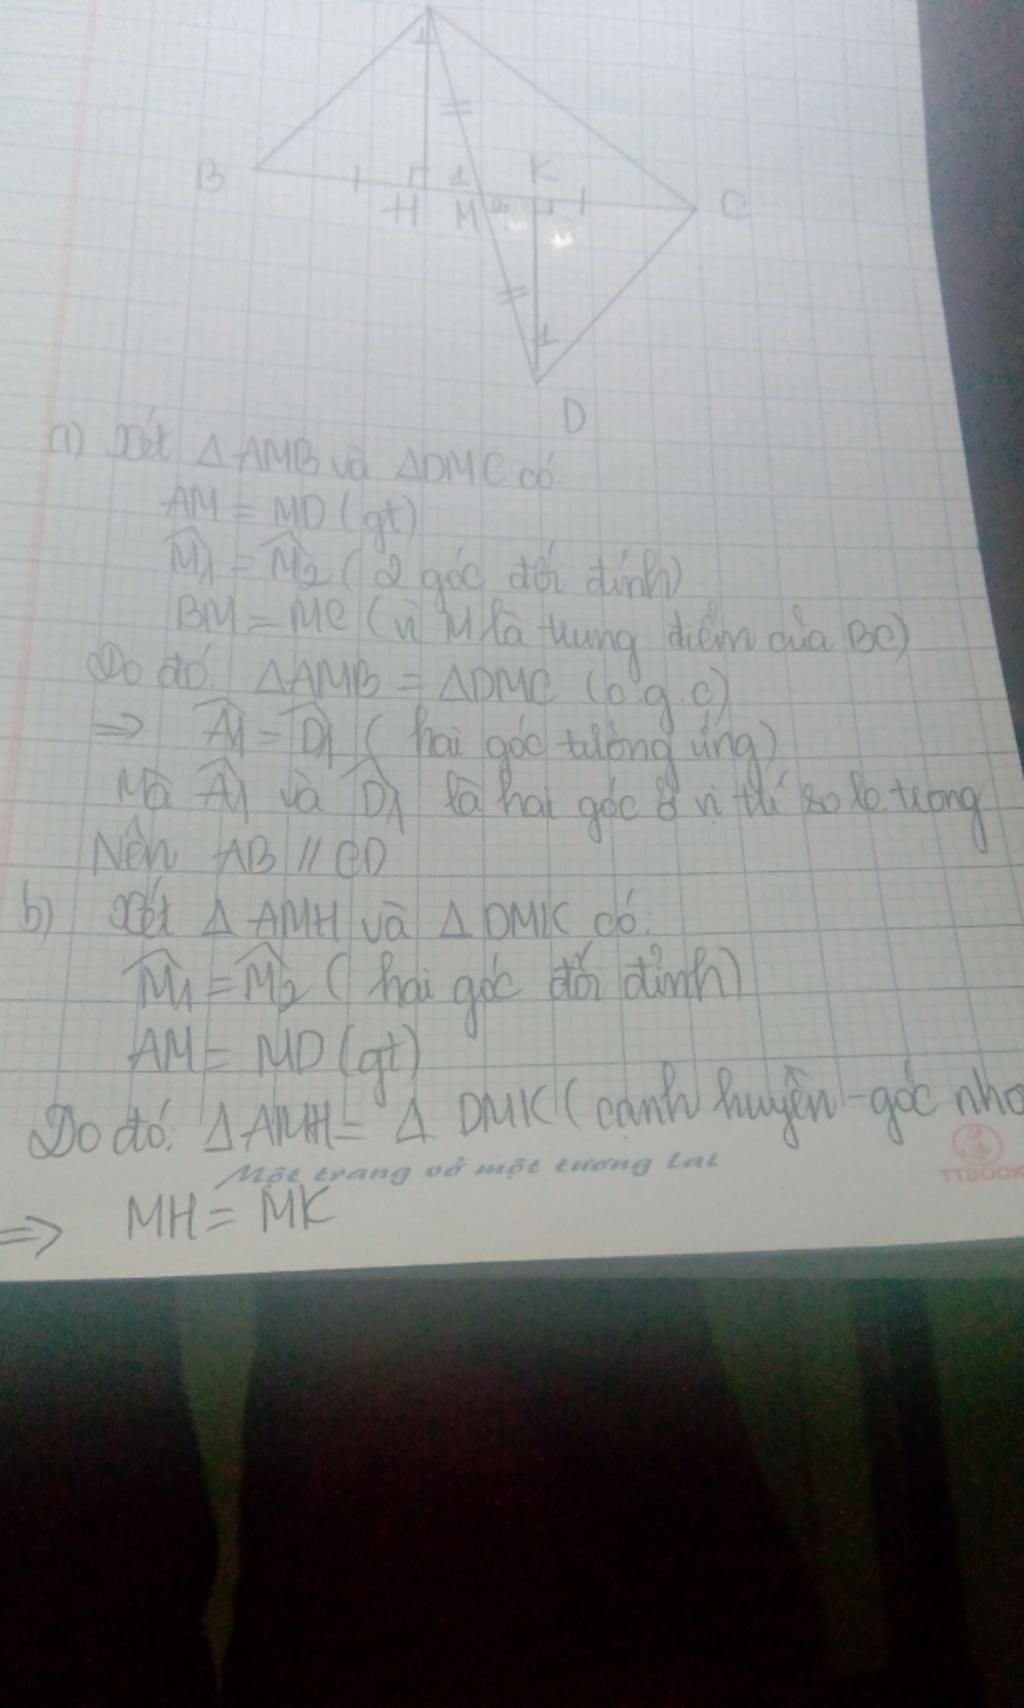 B
1
K
C
H
M
2
1
D
a) Xét Δ AMB và ΔDMC có
AM = MD (gt)
M1 = M2 (2 góc đối đỉnh)
BM = MC (vì M là trung điểm của BC)
Do đó: ΔAMB = ΔDMC (c.g.c)
=> A1 = D1 (hai góc tương ứng)
Mà A1 và D1 là hai góc ở vị trí so le trong
Nên AB // CD
b) Xét Δ AMH và Δ DMK có:
M1 = M2 (hai góc đối đỉnh)
AM = MD (gt)
Do đó: ΔAMH = Δ DMK (cạnh huyền - góc nhọ
Một trang vở một tương lai
TTBOOK
=> MH = MK